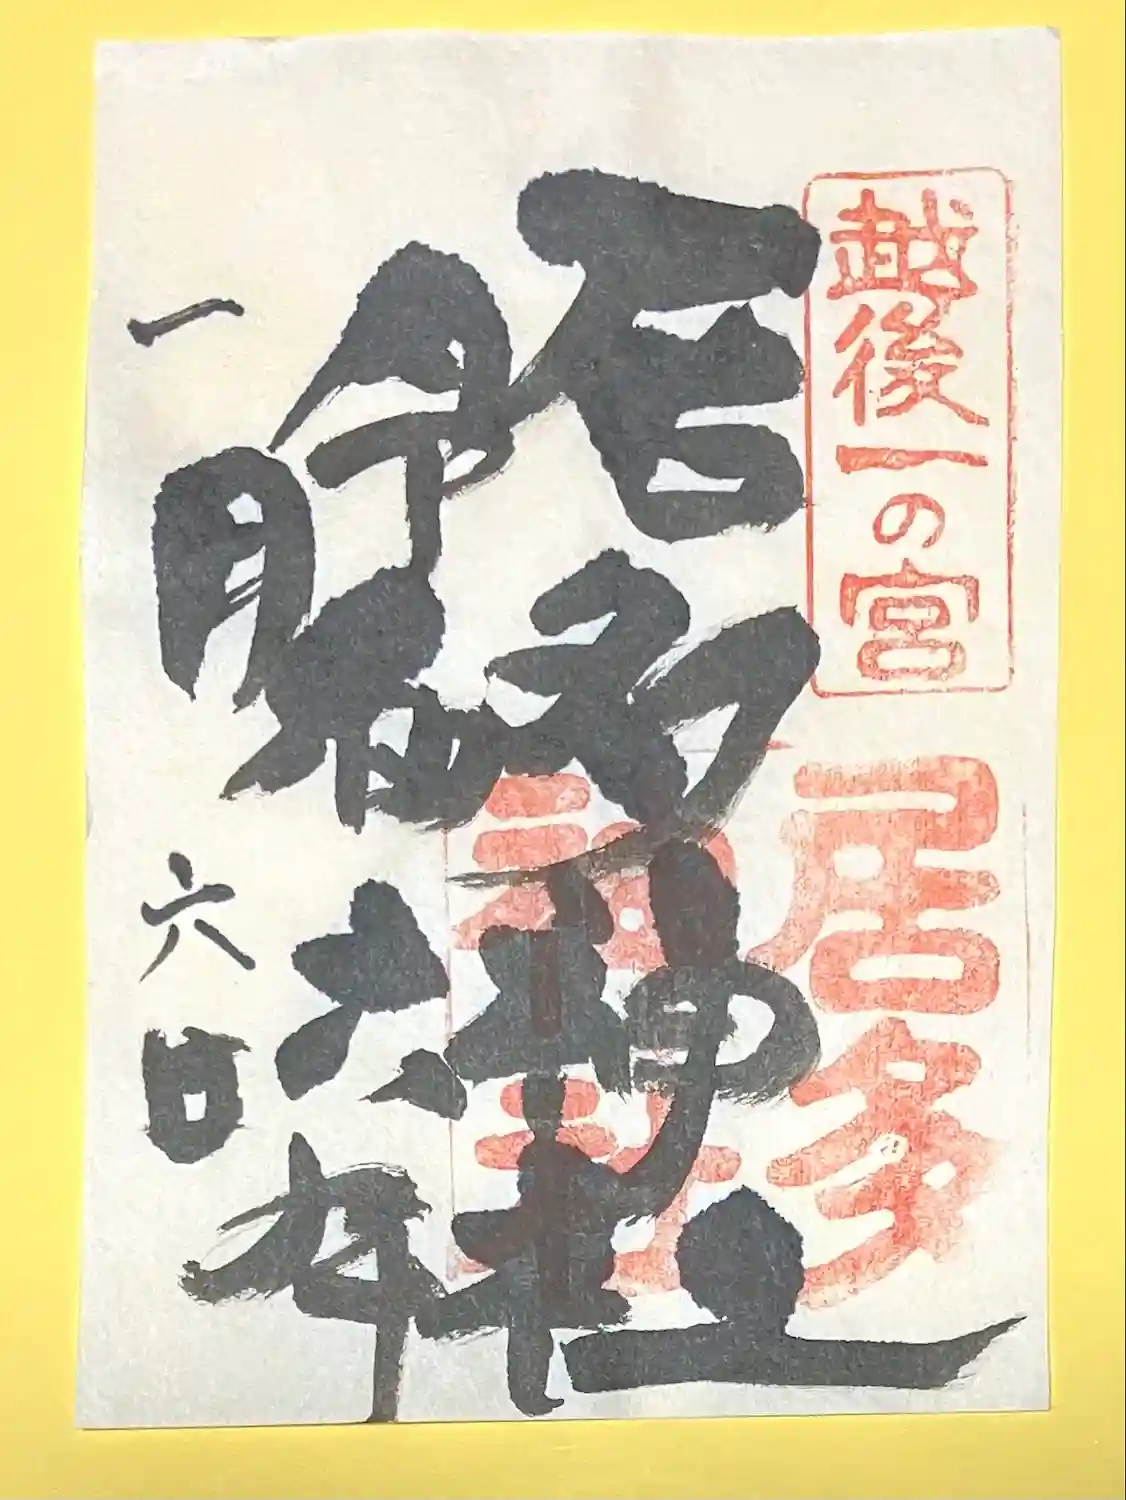 越後一の宮
居多神社
居多神社
令和六年
一月六日